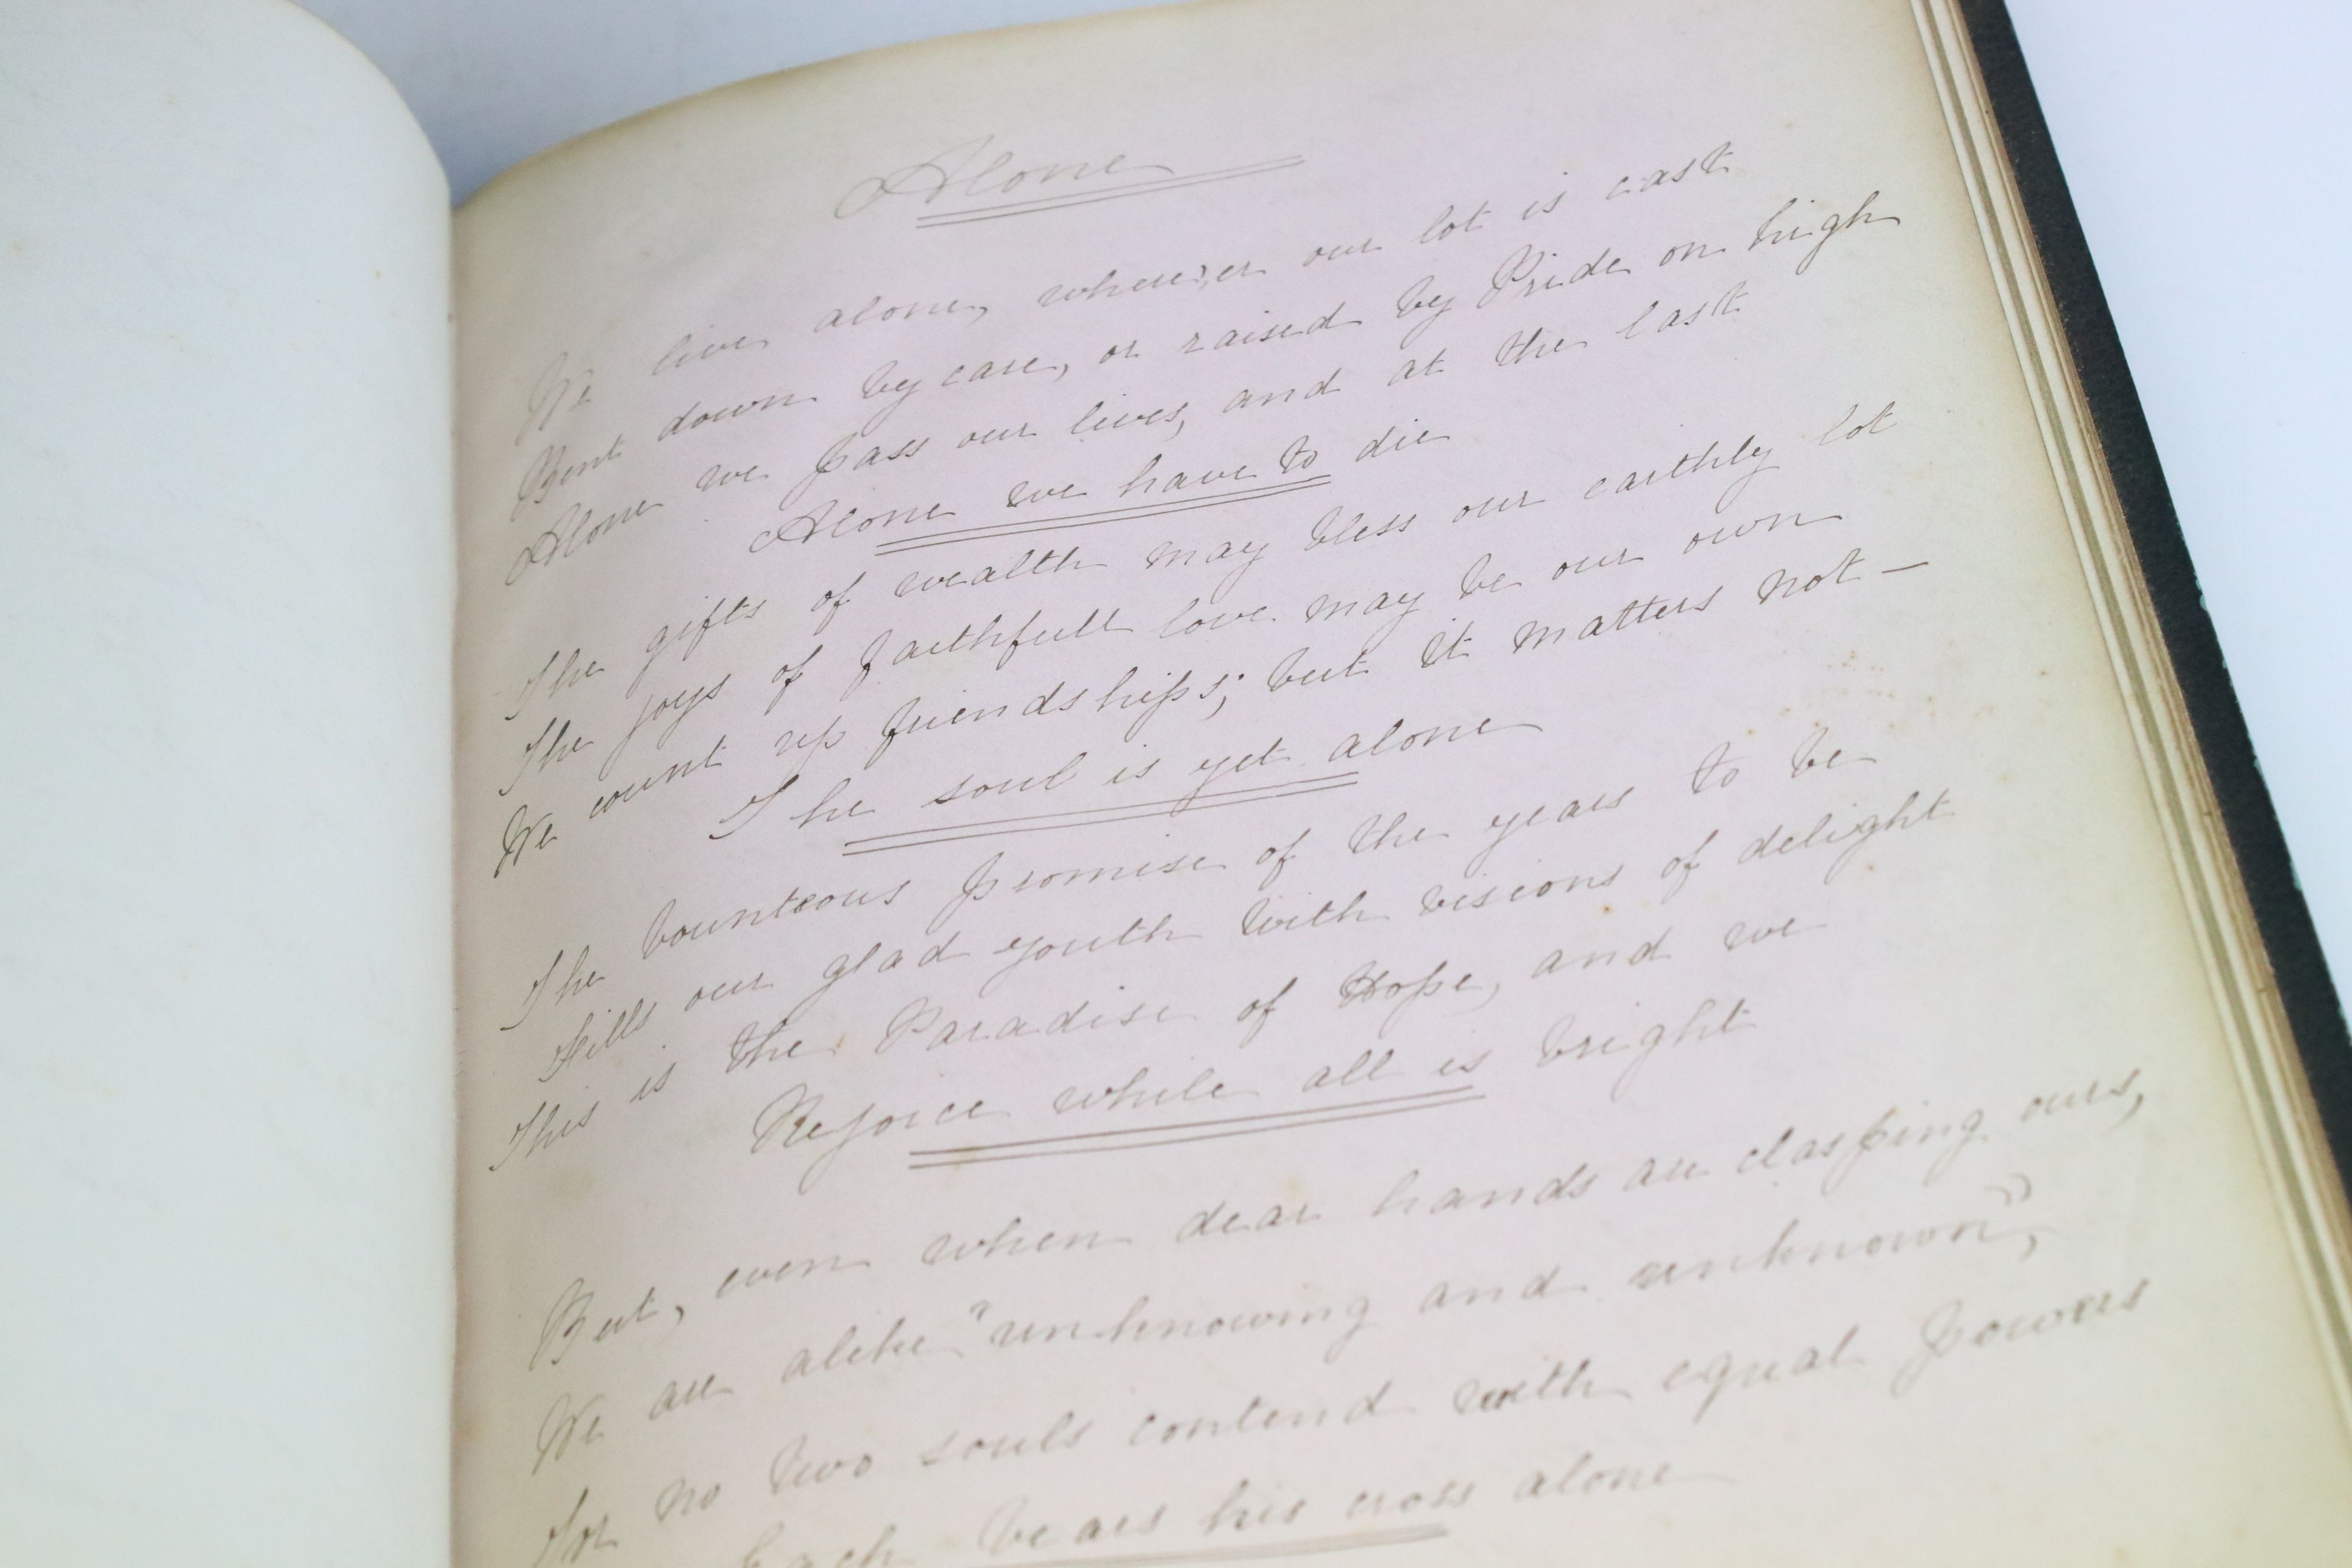 Alone
We live alone, where'er our lot is cast
Bent down by care, or raised by Pride on high
Alone we pass our lives, and at the last
Alone we have to die
The gifts of wealth may bless our earthly lot
The joys of faithfull love may be our own
We count up friendships; but it matters not —
The soul is yet alone
The bounteous promise of the years to be
Fills our glad youth with visions of delight
This is the Paradise of Hope, and we
Rejoice while all is bright
But, even when dear hands are clasping ours,
We are alike "unknowing and unknown",
For no two souls contend with equal powers
Each bears his cross alone